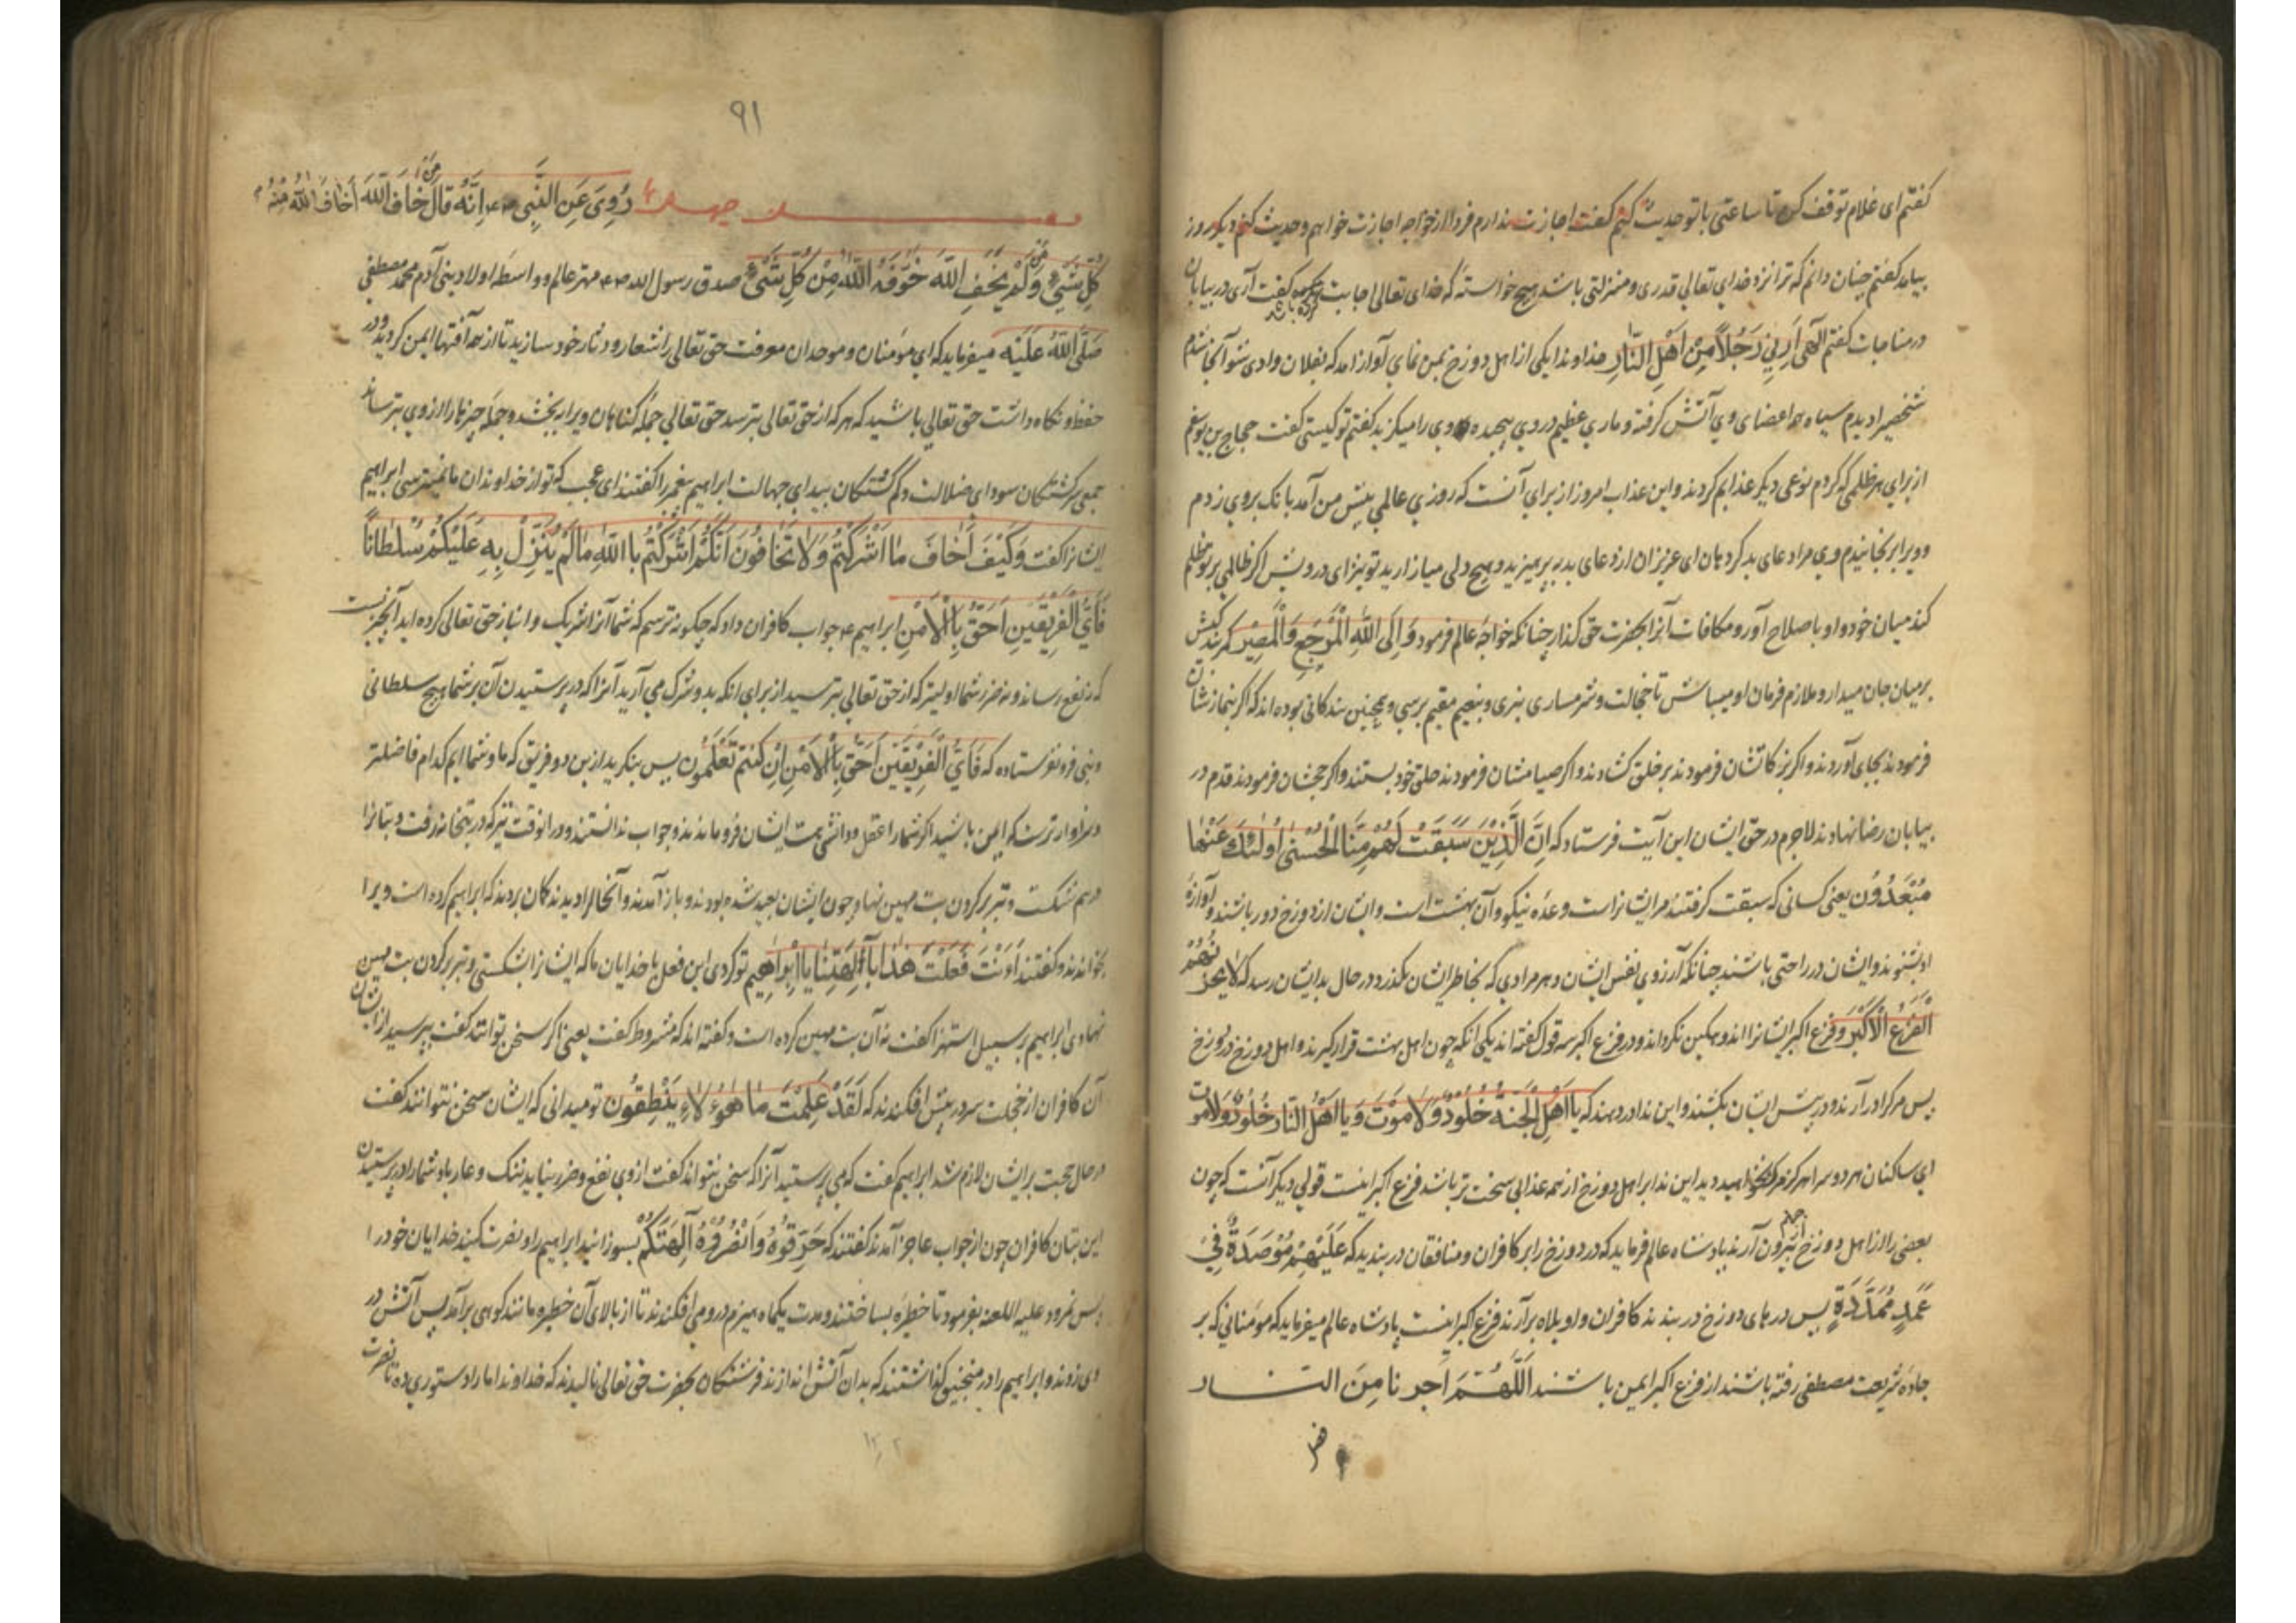 گفتم ای غلام توقف کن تا ساعتی با تو حدیث کنم گفت اجازت ندارم فردا از خواجه اجازت خواهم و حدیث کنم دیگر روز
بیامد گفتم چنان دانم که ترا نزد خدای تعالی قدری و منزلتی باشد هیچ خواسته که خدای تعالی اجابت کرده باشد گفت آری در بیابان
در مناجات گفتم الهی اَرِنی رَجُلاً مِن اَهلِ النّارِ خداوندا یکی از اهل دوزخ بمن نمای آواز آمد که بفلان وادی شو آنجا شدم
شخصی را دیدم سیاه همه اعضای وی آتش گرفته و ماری عظیم در وی پیچیده وی را میگزید گفتم تو کیستی گفت حجاج بن یوسفم
از برای هر ظلمی که کردم نوعی دیگر عذابم کردند و این عذاب امروز از برای آنست که روزی عالمی پیش من آمد بانگ بر وی زدم
و ویرا برنجانیدم وی مرا دعای بد کرد هان ای عزیزان از دعای بد بپرهیزید و هیچ دلی میازارید تو نیز ای درویش اگر ظالمی بر تو ظلم
کند میان خود و او با صلاح آور و مکافات آنرا بحضرت حق گذار چنانکه خواجه عالم فرمود وَاِلَی اللهِ المَرجِع وَالمَصِیر کمر بندکیش
بر میان جان میدار و ملازم فرمان او میباش تا خجالت و شرمساری نبری و بنعیم مقیم برسی و همچنین بندگانی بوده اند که اگر بنمازشان
فرمودند بجای آوردند و اگر بزکاتشان فرمودند بر خلق گشادند و اگر صیامشان فرمودند حلق خود ببستند و اگر حجشان فرمودند قدم در
بیابان رضا نهادند لاجرم در حق ایشان این آیت فرستاد که اِنَّ الَّذِینَ سَبَقَت لَهُم مِنَّا الحُسنی اُولئِکَ عَنها
مُبعَدُون یعنی کسانی که سبقت گرفتند مر ایشانراست وعده نیکو و آن بهشت است و ایشان از دوزخ دور باشند و آوازهٔ
او نشنوند و ایشان در راحتی باشند چنانکه آرزوی نفس ایشان و هر مرادی که بخاطر ایشان بگذرد در حال بدیشان رسد که لایَحزُنُهُم
الفَزَعُ الاَکبَر و فزع اکبر ایشانرا اندوهگین نکرداند و در فزع اکبر سه قول گفته اند یکی آنکه چون اهل بهشت قرار گیرند و اهل دوزخ در دوزخ
پس مرگ را در آرند و در پیش ایشان بکشند و این ندا در دهند که یا اَهلَ الجَنَّه خُلُودٌ وَلا مَوتَ وَیا اَهلَ النّار خُلُودٌ وَلا مَوت
ای ساکنان هر دو سرا هرگز مرگ نخواهید دید این ندا بر اهل دوزخ از همه عذابی سخت تر باشد فزع اکبر اینست قولی دیگر آنست که چون
بعضی را از اهل دوزخ از جهنم بیرون آرند پادشاه عالم فرماید که در دوزخ را بر کافران و منافقان در بندید که عَلَیهِم مُؤصَدَةٌ فِی
عَمَدٍ مُمَدَّدَةٍ پس درهای دوزخ در بندند کافران واویلاه برآرند فزع اکبر اینست پادشاه عالم میفرماید که مؤمنانی که بر
جادهٔ شریعت مصطفی رفته باشند از فزع اکبر ایمن باشند اَللّهُمَّ اَجِرنا مِنَ النّار
۹۱
رُوِیَ عَنِ النَّبِی اِنَّهُ قالَ مَن خافَ اللهَ اَخافَ اللهُ مِنهُ
کُلَّ شَیءٍ وَمَن لَم یَخَفِ اللهَ خَوَّفَهُ اللهُ مِن کُلِّ شَیءٍ صدق رسول الله مهتر عالم و واسطهٔ اولاد بنی آدم محمد مصطفی
صَلَّی اللهُ عَلَیه میفرماید که ای مؤمنان و موحدان معرفت حق تعالی را شعار و دثار خود سازید تا از همه آفتها ایمن گردید و در
حفظ و نگاه داشت حق تعالی باشید که هر که از حق تعالی بترسد حق تعالی جمله گناهان ویرا ببخشد و جمله چیزها را از وی بترساند
جمعی سرگشتگان سودای ضلالت و گم گشتگان بیدای جهالت ابراهیم پیغمبر را گفتند ای عجب که تو از خداوندان ما نمیترسی ابراهیم
ایشانرا گفت وَکَیفَ اَخافُ ما اَشرَکتُم وَلا تَخافُونَ اَنَّکُم اَشرَکتُم بِاللهِ مالَم یُنَزِّل بِهِ عَلَیکُم سُلطاناً
فَاَیُّ الفَرِیقَینِ اَحَقُّ بِالاَمنِ ابراهیم جواب کافران داد که چگونه ترسم که شما آنرا شریک و انباز حق تعالی کرده اید آنچیزیست
که نه نفع رساند و نه ضرر شما اولیتر که از حق تعالی بترسید از برای آنکه بدو شرک می آرید آنرا که در پرستیدن آن بر شما هیچ سلطانی
و نبی فرو نفرستاده که فَاَیُّ الفَرِیقَینِ اَحَقُّ بِالاَمنِ اِن کُنتُم تَعلَمُون پس بنگرید از این دو فریق که ما و شما ایم کدام فاضلتر
و سزاوارتر است که ایمن باشید اگر شما را عقل و دانشی هست ایشان فرو ماندند و جواب ندانستند و در آنوقت نیز که در بتخانه رفت و بتانرا
درهم شکست و تبر بر گردن بت مهین نهاد چون ایشان بعید شده بودند و باز آمدند و آنحال را دیدند گمان بردند که ابراهیم کرده است ویرا
بخواندند و گفتند أَاَنتَ فَعَلتَ هذا بِآلِهَتِنا یا اِبراهیم تو کردی این فعل با خدایان ما که ایشانرا شکستی و تبر بر گردن بت مهین
نهادی ابراهیم بر سبیل استهزا گفت نه آن بت مهین کرده است و گفته اند که مشروط گفت یعنی اگر سخن توانند گفت بپرسید از ایشان
آن کافران از خجلت سر در پیش افکندند که لَقَد عَلِمتَ ما هؤُلاءِ یَنطِقُون تو میدانی که ایشان سخن نتوانند گفت
در حال حجت بر ایشان لازم شد ابراهیم گفت که می پرستید آنرا که سخن نتواند گفت از وی نفع و ضرر نیاید ننگ و عار باد شما را در پرستیدن
این بتان کافران چون از جواب عاجز آمدند گفتند که حَرِّقُوهُ وَانصُرُوا آلِهَتَکُم بسوزانید ابراهیم را و نصرت کنید خدایان خود را
پس نمرود علیه اللعنه بفرمود تا خطیره بساختند و مدت یکماه هیزم در و می افکندند تا از بالای آن خطیره مانند کوهی برآمد پس آتش در
وی زدند و ابراهیم را در منجنیق گذاشتند که بدان آتش اندازند فرشتگان بحضرت حق تعالی نالیدند که خداوندا ما را دستوری ده تا نصرت